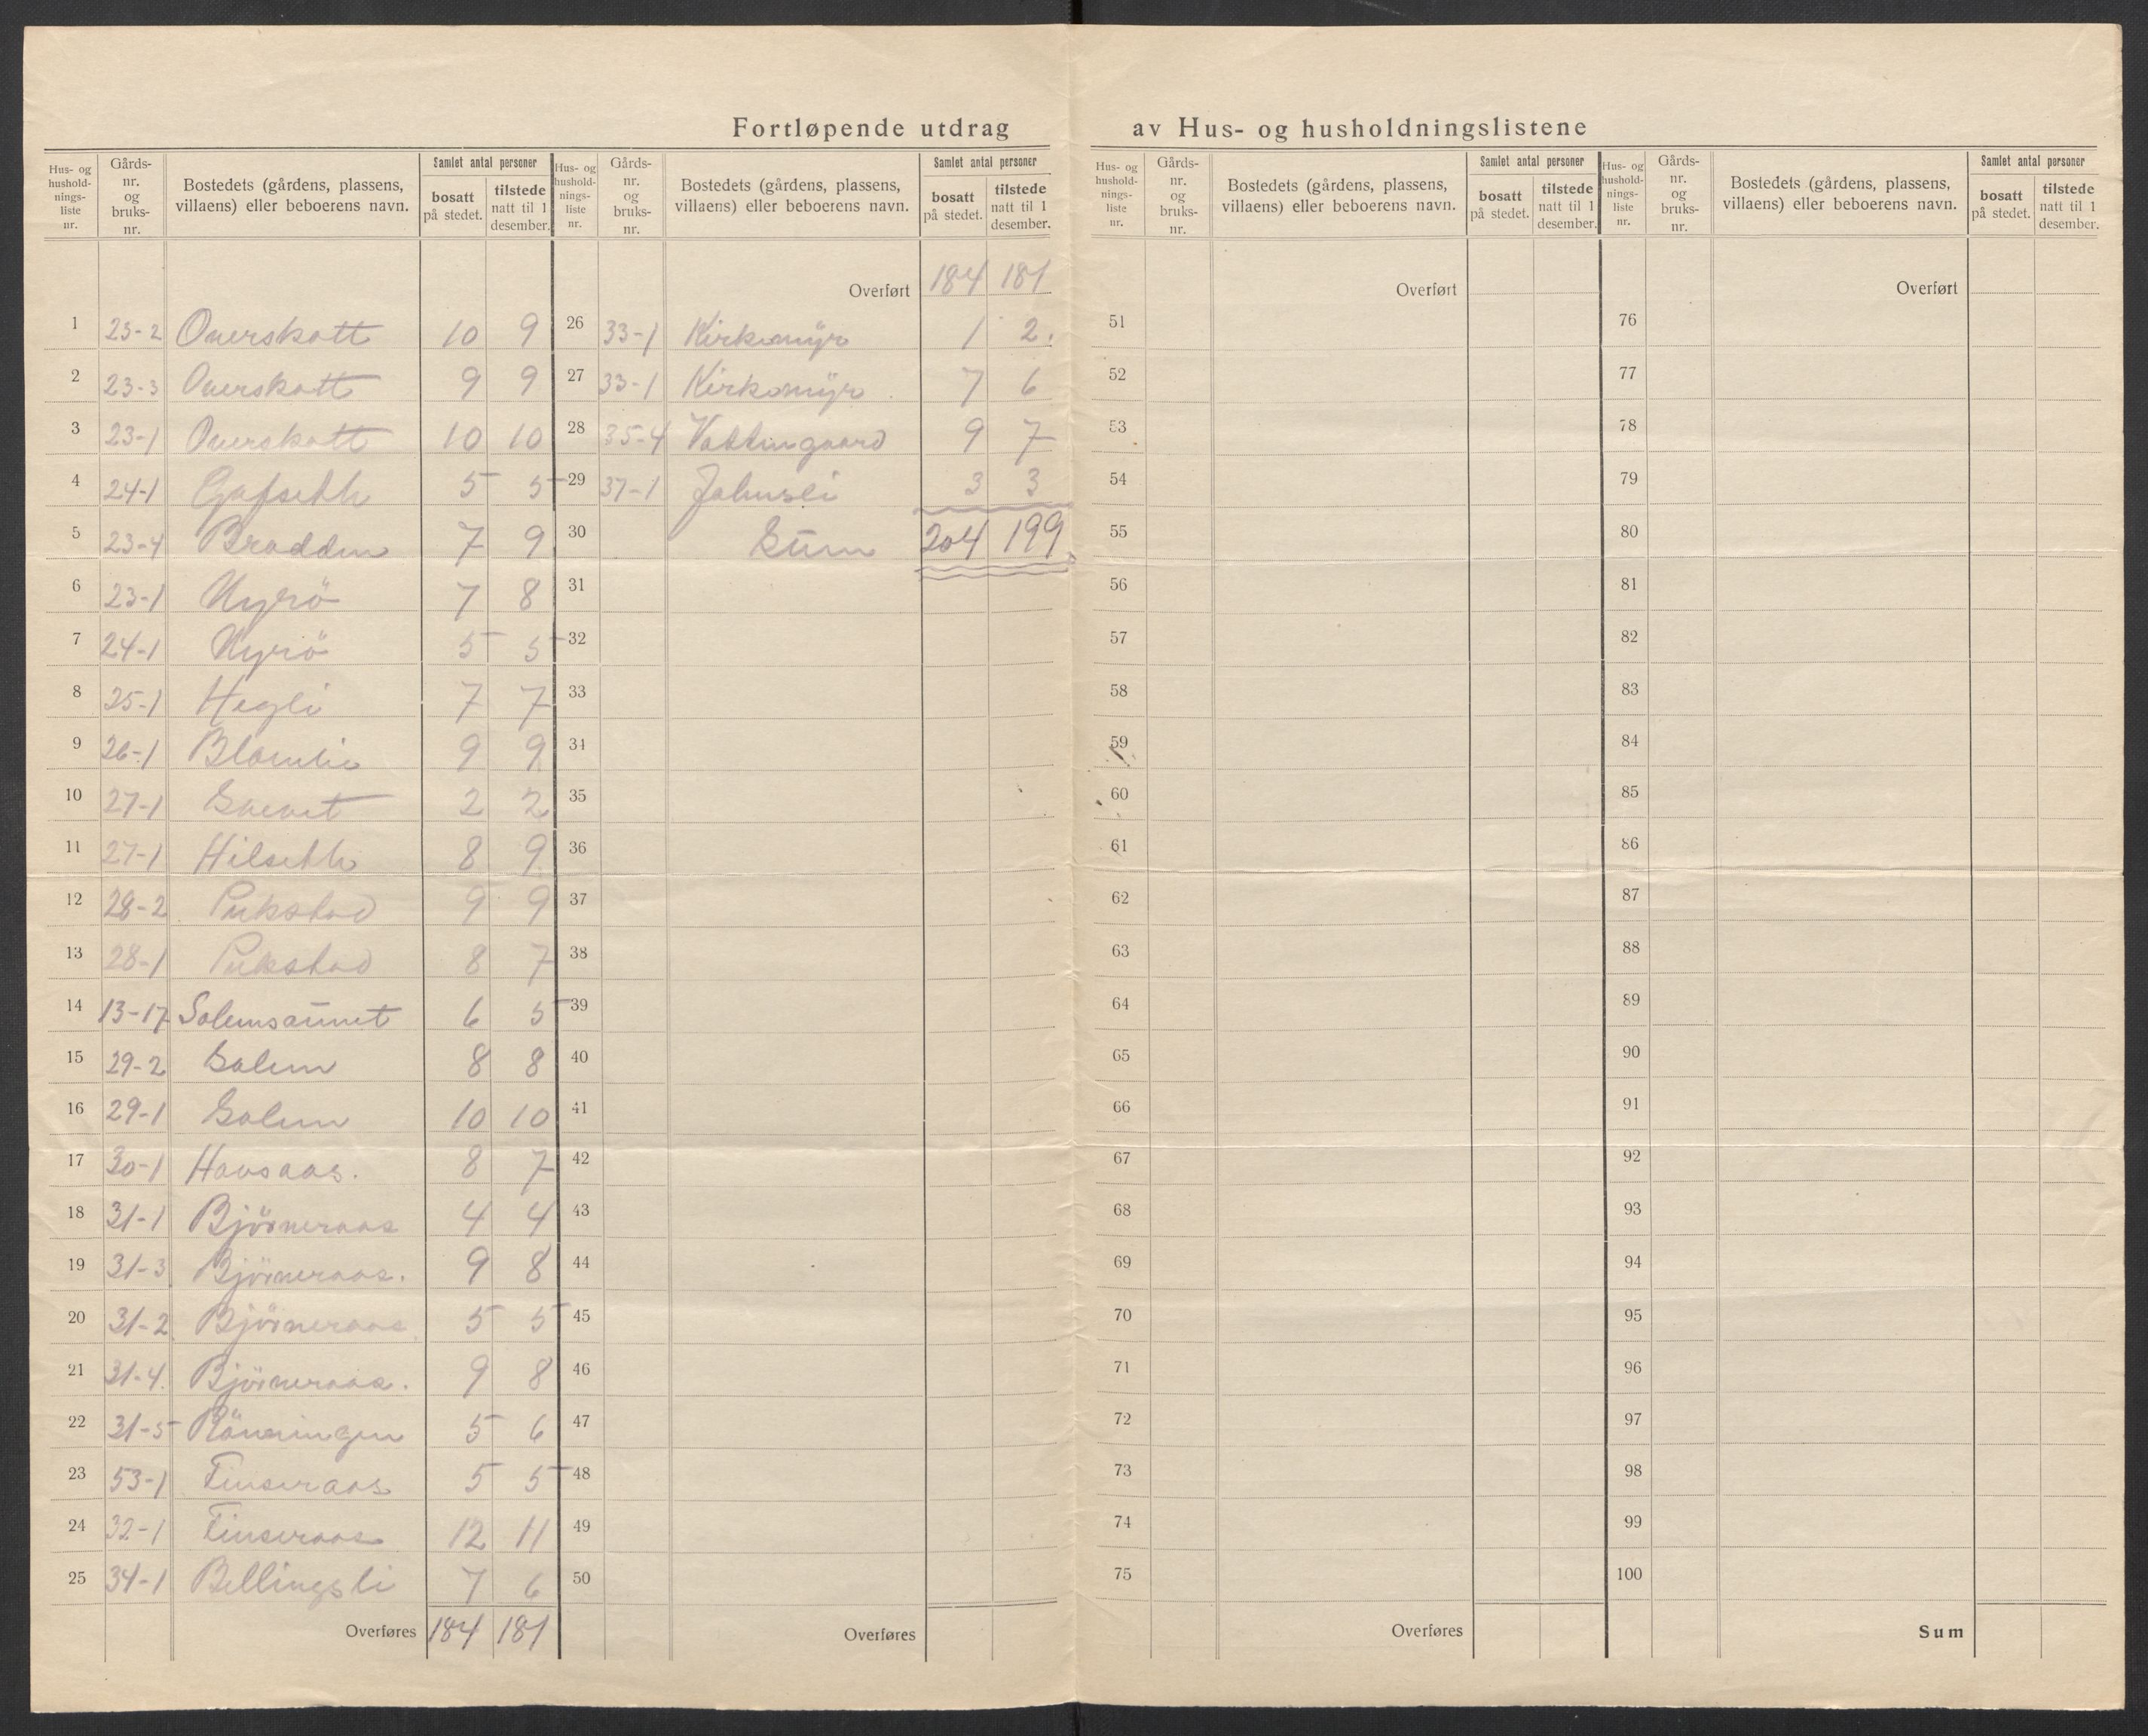 Fortløpende utdrag av Hus- og husholdningslistene
Hus- og hushold-nings-liste nr. Gårds-nr. og bruks-nr. Bostedets (gårdens, plassens, villaens) eller beboerens navn. Samlet antal personer bosatt på stedet. tilstede natt til 1 desember.
1 23-2 Overskott 10 9
2 23-3 Overskott 9 9
3 23-1 Overskott 10 10
4 24-1 Gafseth 5 5
5 23-4 Bradden 7 9
6 23-1 Nyrö 7 8
7 24-1 Nyrö 5 5
8 25-1 Hegli 7 7
9 26-1 Blomli 9 9
10 27-1 2 2
11 27-1 Hilseth 8 9
12 28-2 Pukstad 9 9
13 28-1 Pukstad 8 7
14 13-17 Solemsaunet 6 5
15 29-2 Solem 8 8
16 29-1 Solem 10 10
17 30-1 Havsaas. 8 7
18 31-1 Björneraas 4 4
19 31-3 Björneraas. 9 8
20 31-2 Björneraas 5 5
21 31-4. Björneraas. 9 8
22 31-5 Rönningen 5 6
23 53-1 Finseraas 5 5
24 32-1 Finseraas 12 11
25 34-1 Bellingsli 7 6
Overføres 184 181
Hus- og hushold-nings-liste nr. Gårds-nr. og bruks-nr. Bostedets (gårdens, plassens, villaens) eller beboerens navn. Samlet antal personer bosatt på stedet. tilstede natt til 1 desember.
Overført 184 181
26 33-1 Kirkomyr 1 2.
27 33-1 Kirkomyr 7 6
28 35-4 Vattingaard 9 7
29 37-1 Johnsli 3 3
30 Sum 204 199.
31
32
33
34
35
36
37
38
39
40
41
42
43
44
45
46
47
48
49
50
Overføres
Hus- og hushold-nings-liste nr. Gårds-nr. og bruks-nr. Bostedets (gårdens, plassens, villaens) eller beboerens navn. Samlet antal personer bosatt på stedet. tilstede natt til 1 desember.
Overført
51
52
53
54
55
56
57
58
59
60
61
62
63
64
65
66
67
68
69
70
71
72
73
74
75
Overføres
Hus- og hushold-nings-liste nr. Gårds-nr. og bruks-nr. Bostedets (gårdens, plassens, villaens) eller beboerens navn. Samlet antal personer bosatt på stedet. tilstede natt til 1 desember.
Overført
76
77
78
79
80
81
82
83
84
85
86
87
88
89
90
91
92
93
94
95
96
97
98
99
100
Sum